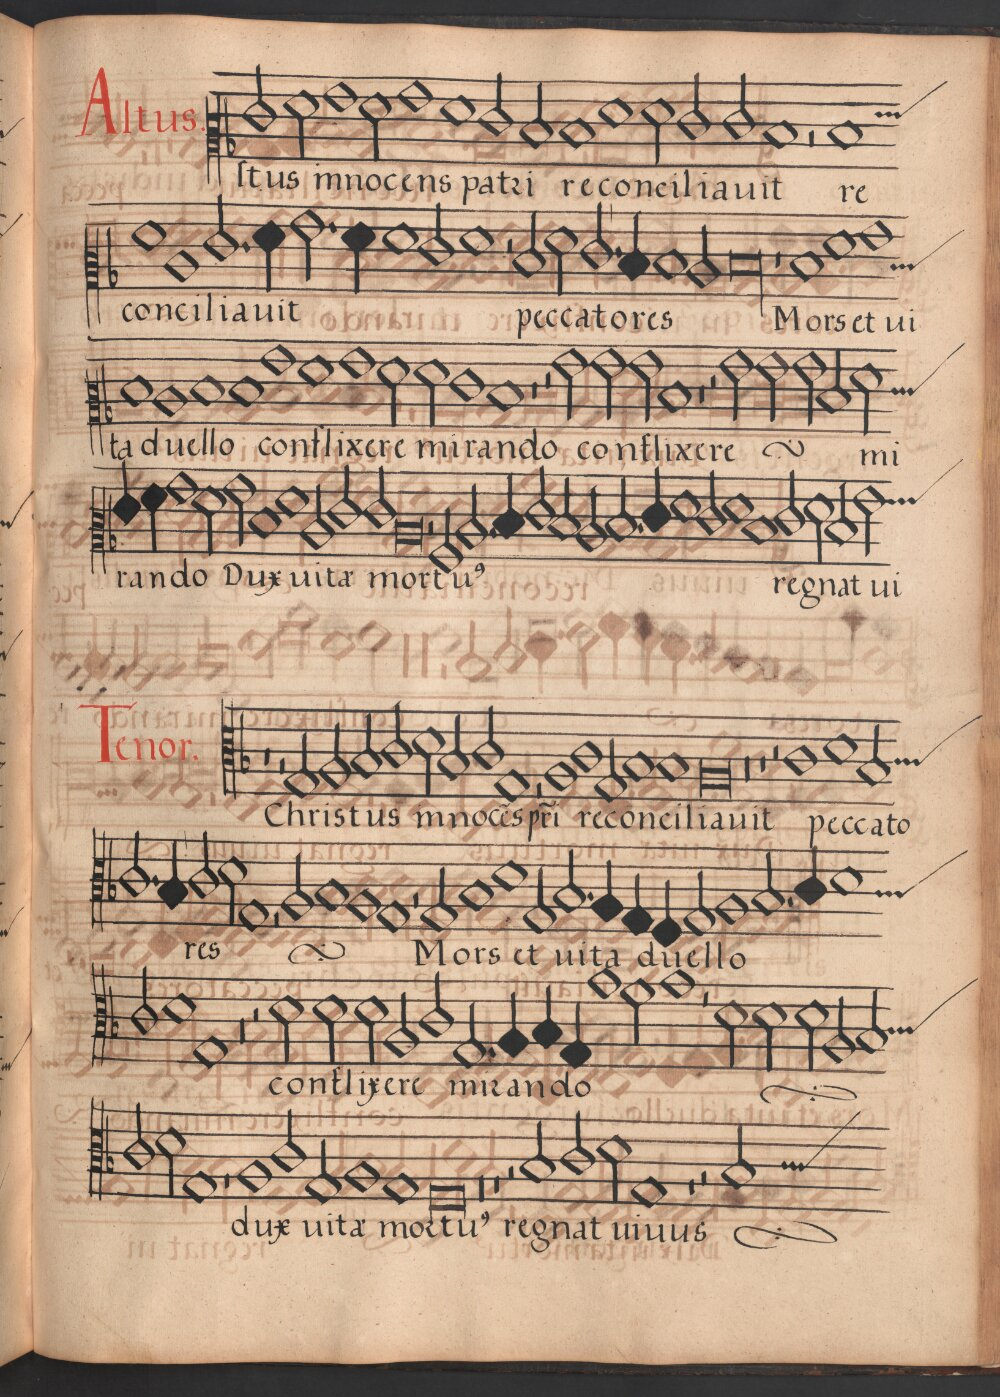 Altus.
stus innocens patri reconciliauit re
conciliauit peccatores Mors et ui
ta duello conflixere mirando conflixere mi
rando Dux uitæ mortuꝰ regnat ui
Tenor.
Christus innocēs pr̄i reconciliauit peccato
res Mors et uita duello
conflixere mirando
dux uitæ mortuꝰ regnat uiuus